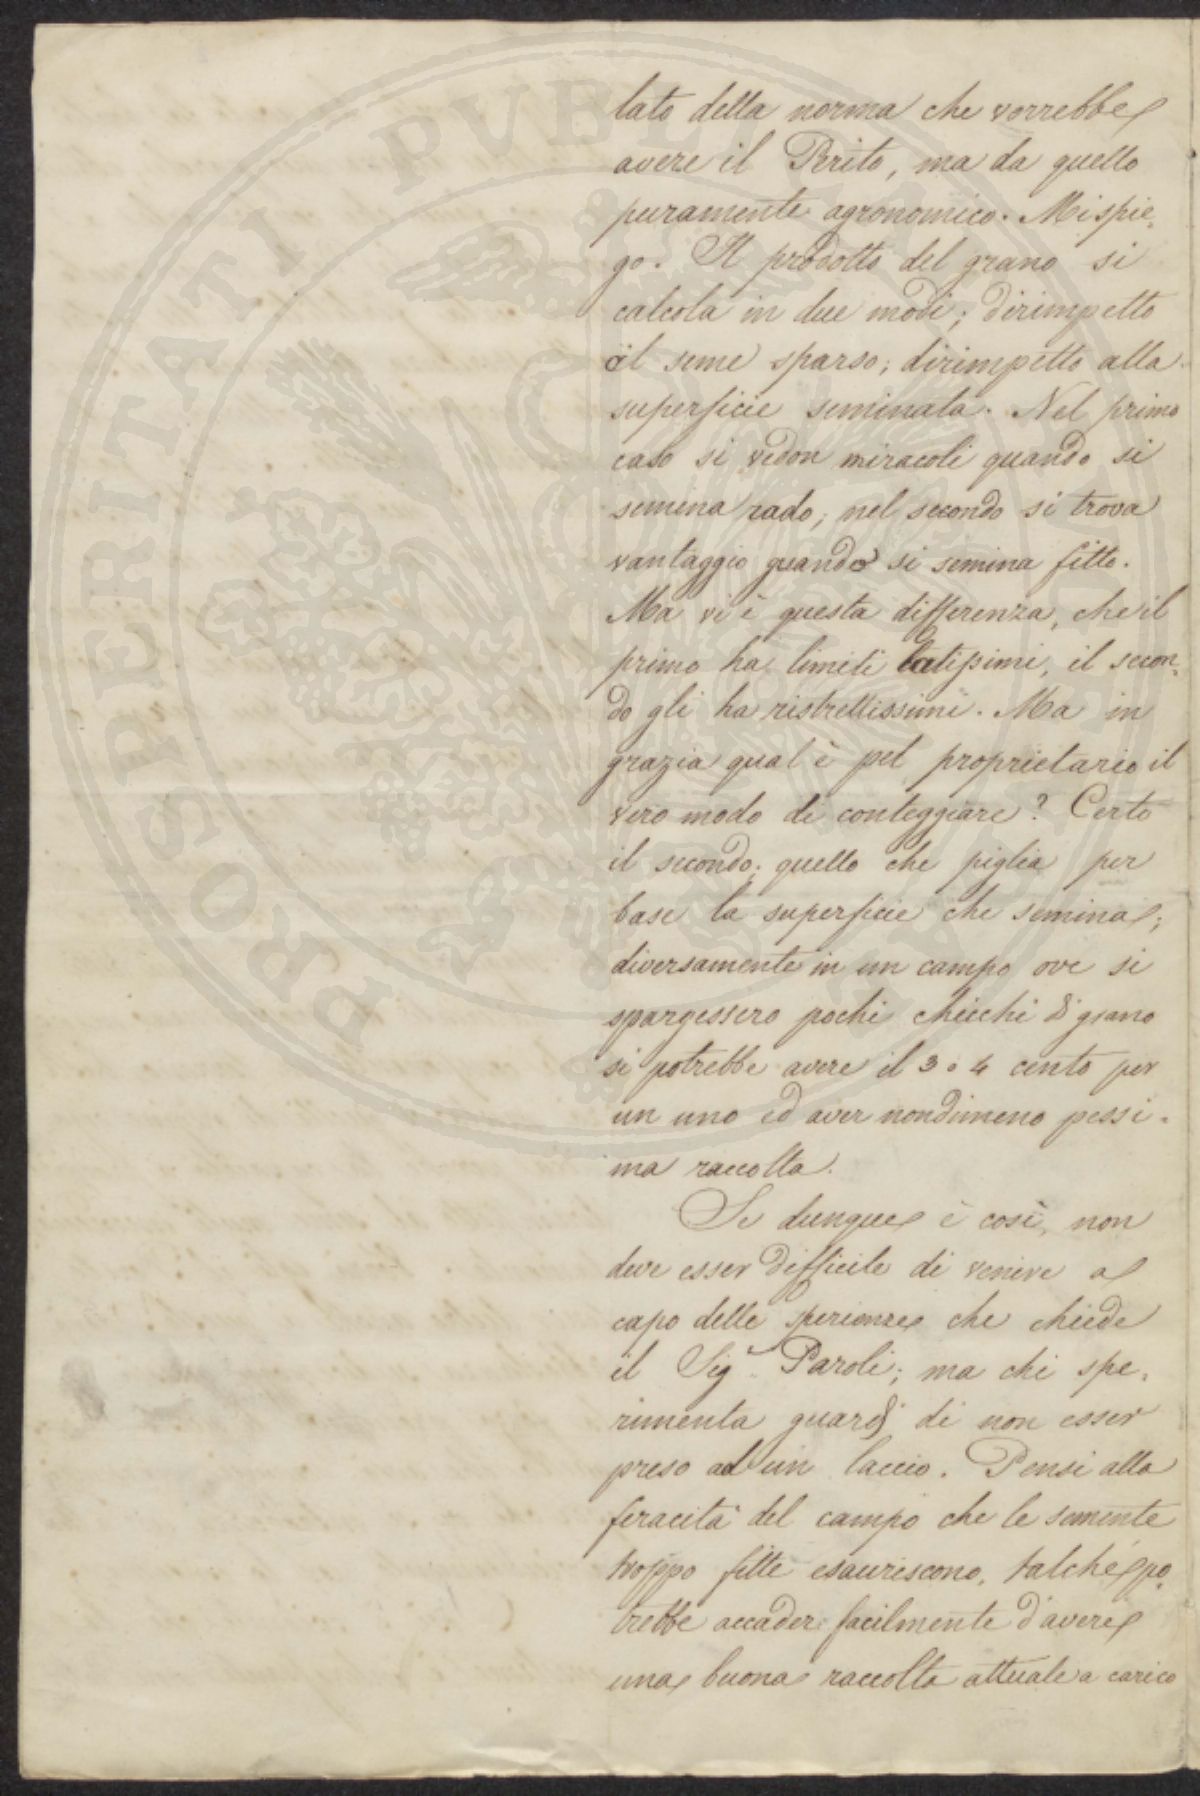 lato della norma che vorrebbe
avere il Perito, ma da quello
puramente agronomico. Mi spie-
go. Il prodotto del grano si
calcola in due modi; dirimpetto
al seme sparso; dirimpetto alla
superficie seminata. Nel primo
caso si vedon miracoli quando si
semina rado; nel secondo si trova
vantaggio quando si semina fitto.
Ma vi è questa differenza, che il
primo ha limiti latissimi, il secon-
do gli ha ristrettissimi. Ma in
grazia qual è pel proprietario il
vero modo di conteggiare? Certo
il secondo; quello che piglia per
base la superficie che semina;
diversamente in un campo ove si
spargessero pochi chicchi di grano
si potrebbe avere il 3 o 4 cento per
un uno ed aver nondimeno pessi-
ma raccolta.
Se dunque è così, non
deve esser difficile di venire a
capo delle sperienze che chiede
il Sigr. Paroli; ma chi spe-
rimenta guardi di non esser
preso ad un laccio. Pensi alla
feracità del campo che le semente
troppo fitte esauriscono, talché po-
trebbe accader facilmente d'avere
una buona raccolta attuale a carico
PROSPERITATI PUBLICAE AUGENDAE